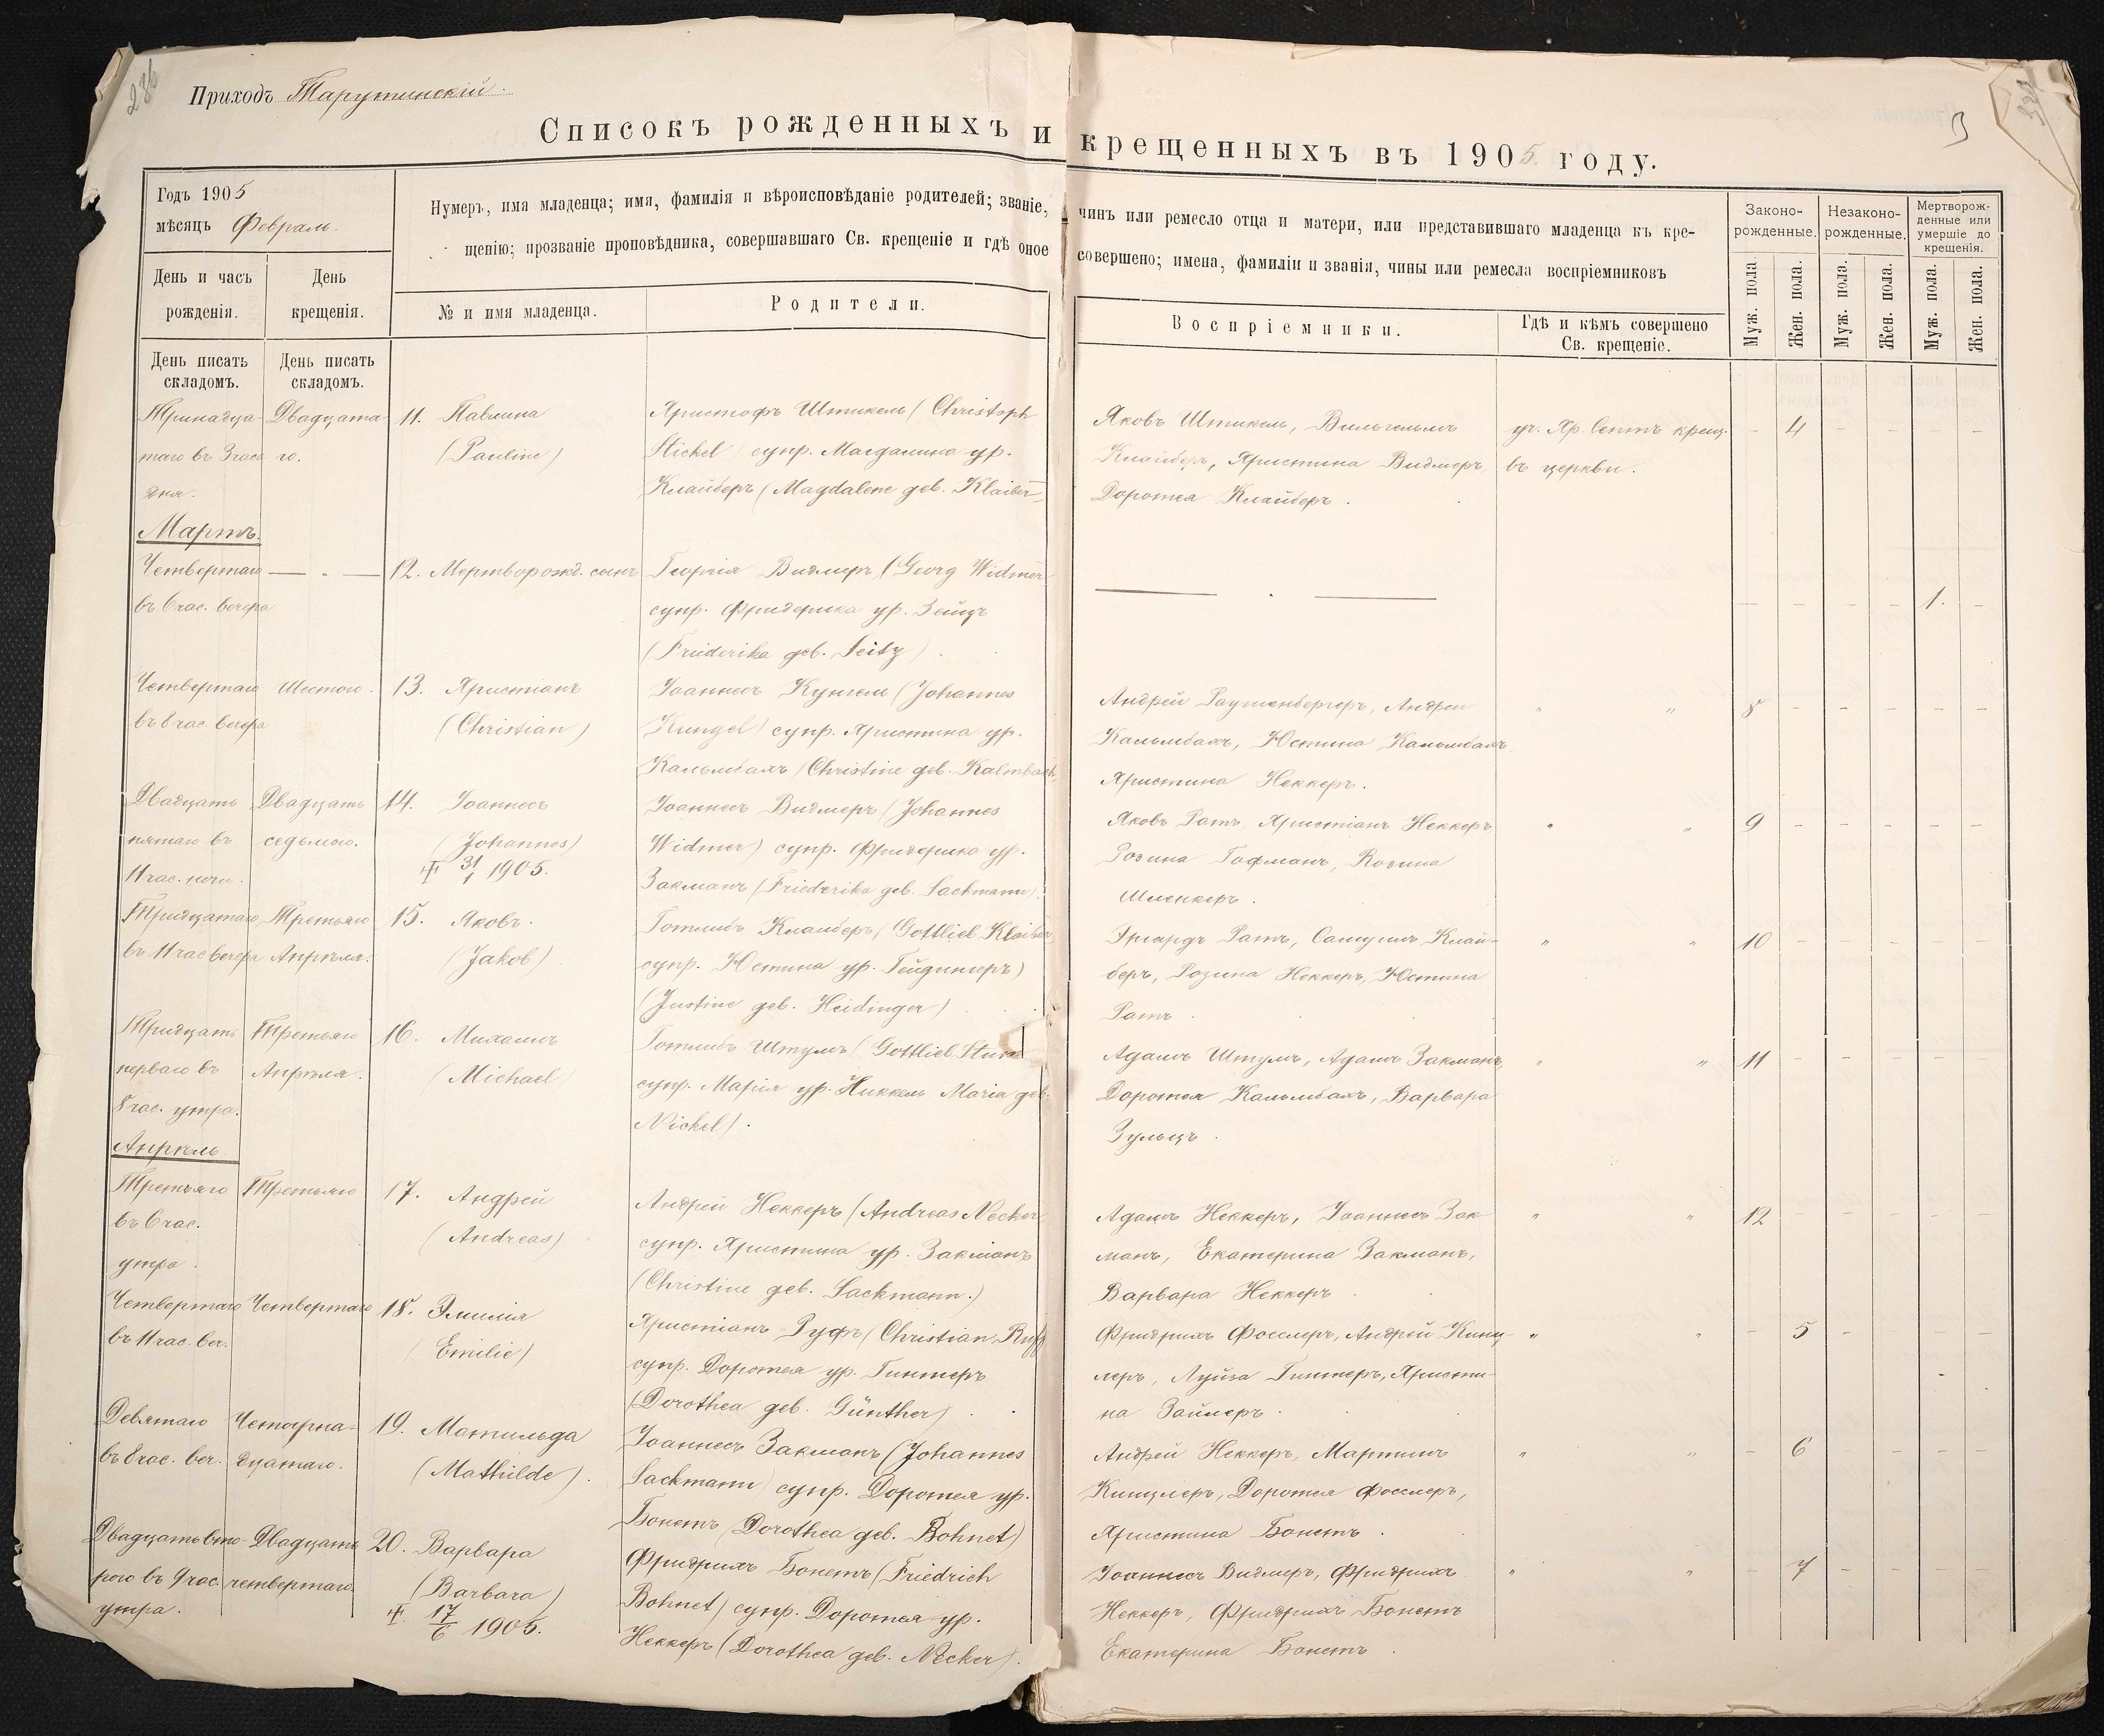 236
Приходъ Тарутинскій.
Списокъ рожденныхъ и крещенныхъ въ 1905. году.
Годъ 1905
мѣсяцъ Февраль.
Нумеръ, имя младенца; имя, фамилія и вѣроисповѣданіе родителей; званіе, чинъ или ремесло отца и матери, или представившаго младенца къ кре-
щенію; прозваніе проповѣдника, совершавшаго Св. крещеніе и гдѣ оное совершено; имена, фамиліи и званія, чины или ремесла воспріемниковъ
День и часъ рожденія.
День крещенія.
№ и имя младенца.
Родители.
Воспріемники.
Гдѣ и кѣмъ совершено
Св. крещеніе.
Законо-
рожденные.
Незаконо-
рожденные.
Мертворож-
денные или
умершіе до
крещенія.
Муж. пола. Жен. пола. Муж. пола. Жен. пола. Муж. пола. Жен. пола.
День писать складомъ.
День писать складомъ.
Тринадца- Двадцата- 11. Павлина Христофъ Штикель (Christoph Яковъ Штикель, Вильгельмъ уч. Хр. Септъ крещ. - 4 - - - -
таго въ 3 часа го. (Pauline) Stickel) супр. Магдалина ур. Клайберъ, Христина Видмеръ, въ церкви.
дня. Клайберъ (Magdalene geb. Klaiber) Доротея Клайберъ.
Мартъ.
Четвертаго — . — 12. Мертворожд. сынъ Георгія Видмеръ (Georg Widmer — . — - - - - 1. -
въ 6 час. вечера супр. Фридерика ур. Зейцъ
(Friederike geb. Seitz)
Четвертаго Шестого. 13. Христіанъ Іоаннесъ Кунгель (Johannes Андрей Раушенбергеръ, Андрей " " 8 - - - - -
въ 8 час. вечера (Christian) Kungel) супр. Христина ур. Кальмбахъ, Юстина Кальмбахъ
Кальмбахъ (Christine geb. Kalmbach) Христина Неккеръ.
Двадцать Двадцать 14. Іоаннесъ Іоаннесъ Видмеръ (Johannes Яковъ Ратъ, Христіанъ Неккеръ " " 9 - - - - -
пятаго въ седьмого. (Johannes) Widmer) супр. Фридерика ур. Розина Гофманъ, Розина
11 час. ночи. 1905. Закманъ (Friederike geb. Sackmann). Шленкеръ.
Тридцатаго Третьяго 15. Яковъ. Готлибъ Клайберъ (Gottlieb Klaiber Эргардъ Ратъ, Самуилъ Клай- " " 10 - - - - -
въ 11 час вечера Апрѣля. (Jakob) супр. Юстина ур. Гейдингеръ) беръ, Розина Неккеръ, Юстина
(Justine geb. Heidinger) Ратъ.
Тридцать Третьяго 16. Михаилъ Готлибъ Штумъ (Gottlieb Stum Адамъ Штумъ, Адамъ Закманъ, " " 11 - - - - -
перваго въ Апрѣля. (Michael) супр. Марія ур. Никкель Maria geb. Доротея Кальмбахъ, Варвара
8 час. утра. Nickel). Зульцъ.
Апрѣль
Третьяго Третьяго 17. Андрей Андрей Неккеръ (Andreas Necker, Адамъ Неккеръ, Іоаннесъ Зак- " " 12 - - - - -
въ 6 час. (Andreas) супр. Христина ур. Закманъ манъ, Екатерина Закманъ,
утра. (Christine geb. Sackmann.) Варвара Неккеръ
Четвертаго Четвертаго 18. Эмилія Христіанъ Руфъ (Christian Ruff Фридрихъ Фосслеръ, Андрей Кинц- " " - 5 - - - -
въ 11 час. веч. (Emilie) супр. Доротея ур. Гинтеръ леръ, Луйза Гинтеръ, Христи-
(Dorothea geb. Günther) на Зайлеръ.
Девятаго Четырна- 19. Матильда Іоаннесъ Закманъ (Johannes Андрей Неккеръ, Мартинъ " " - 6 - - -
въ 8 час. веч. дцатаго. (Mathilde). Sackmann) супр. Доротея ур. Кинцлеръ, Доротея Фосслеръ,
Бонетъ (Dorothea geb. Bohnet) Христина Бонетъ.
Двадцать вто- Двадцать 20. Варвара Фридрихъ Бонетъ (Friedrich Іоаннесъ Видмеръ, Фридрихъ " " - 7 - - - -
рого въ 9 час. четвертаго. (Barbara) Bohnet) супр. Доротея ур. Неккеръ, Фридрихъ Бонетъ
утра. 17/6 1905. Неккеръ (Dorothea geb. Necker). Екатерина Бонетъ.